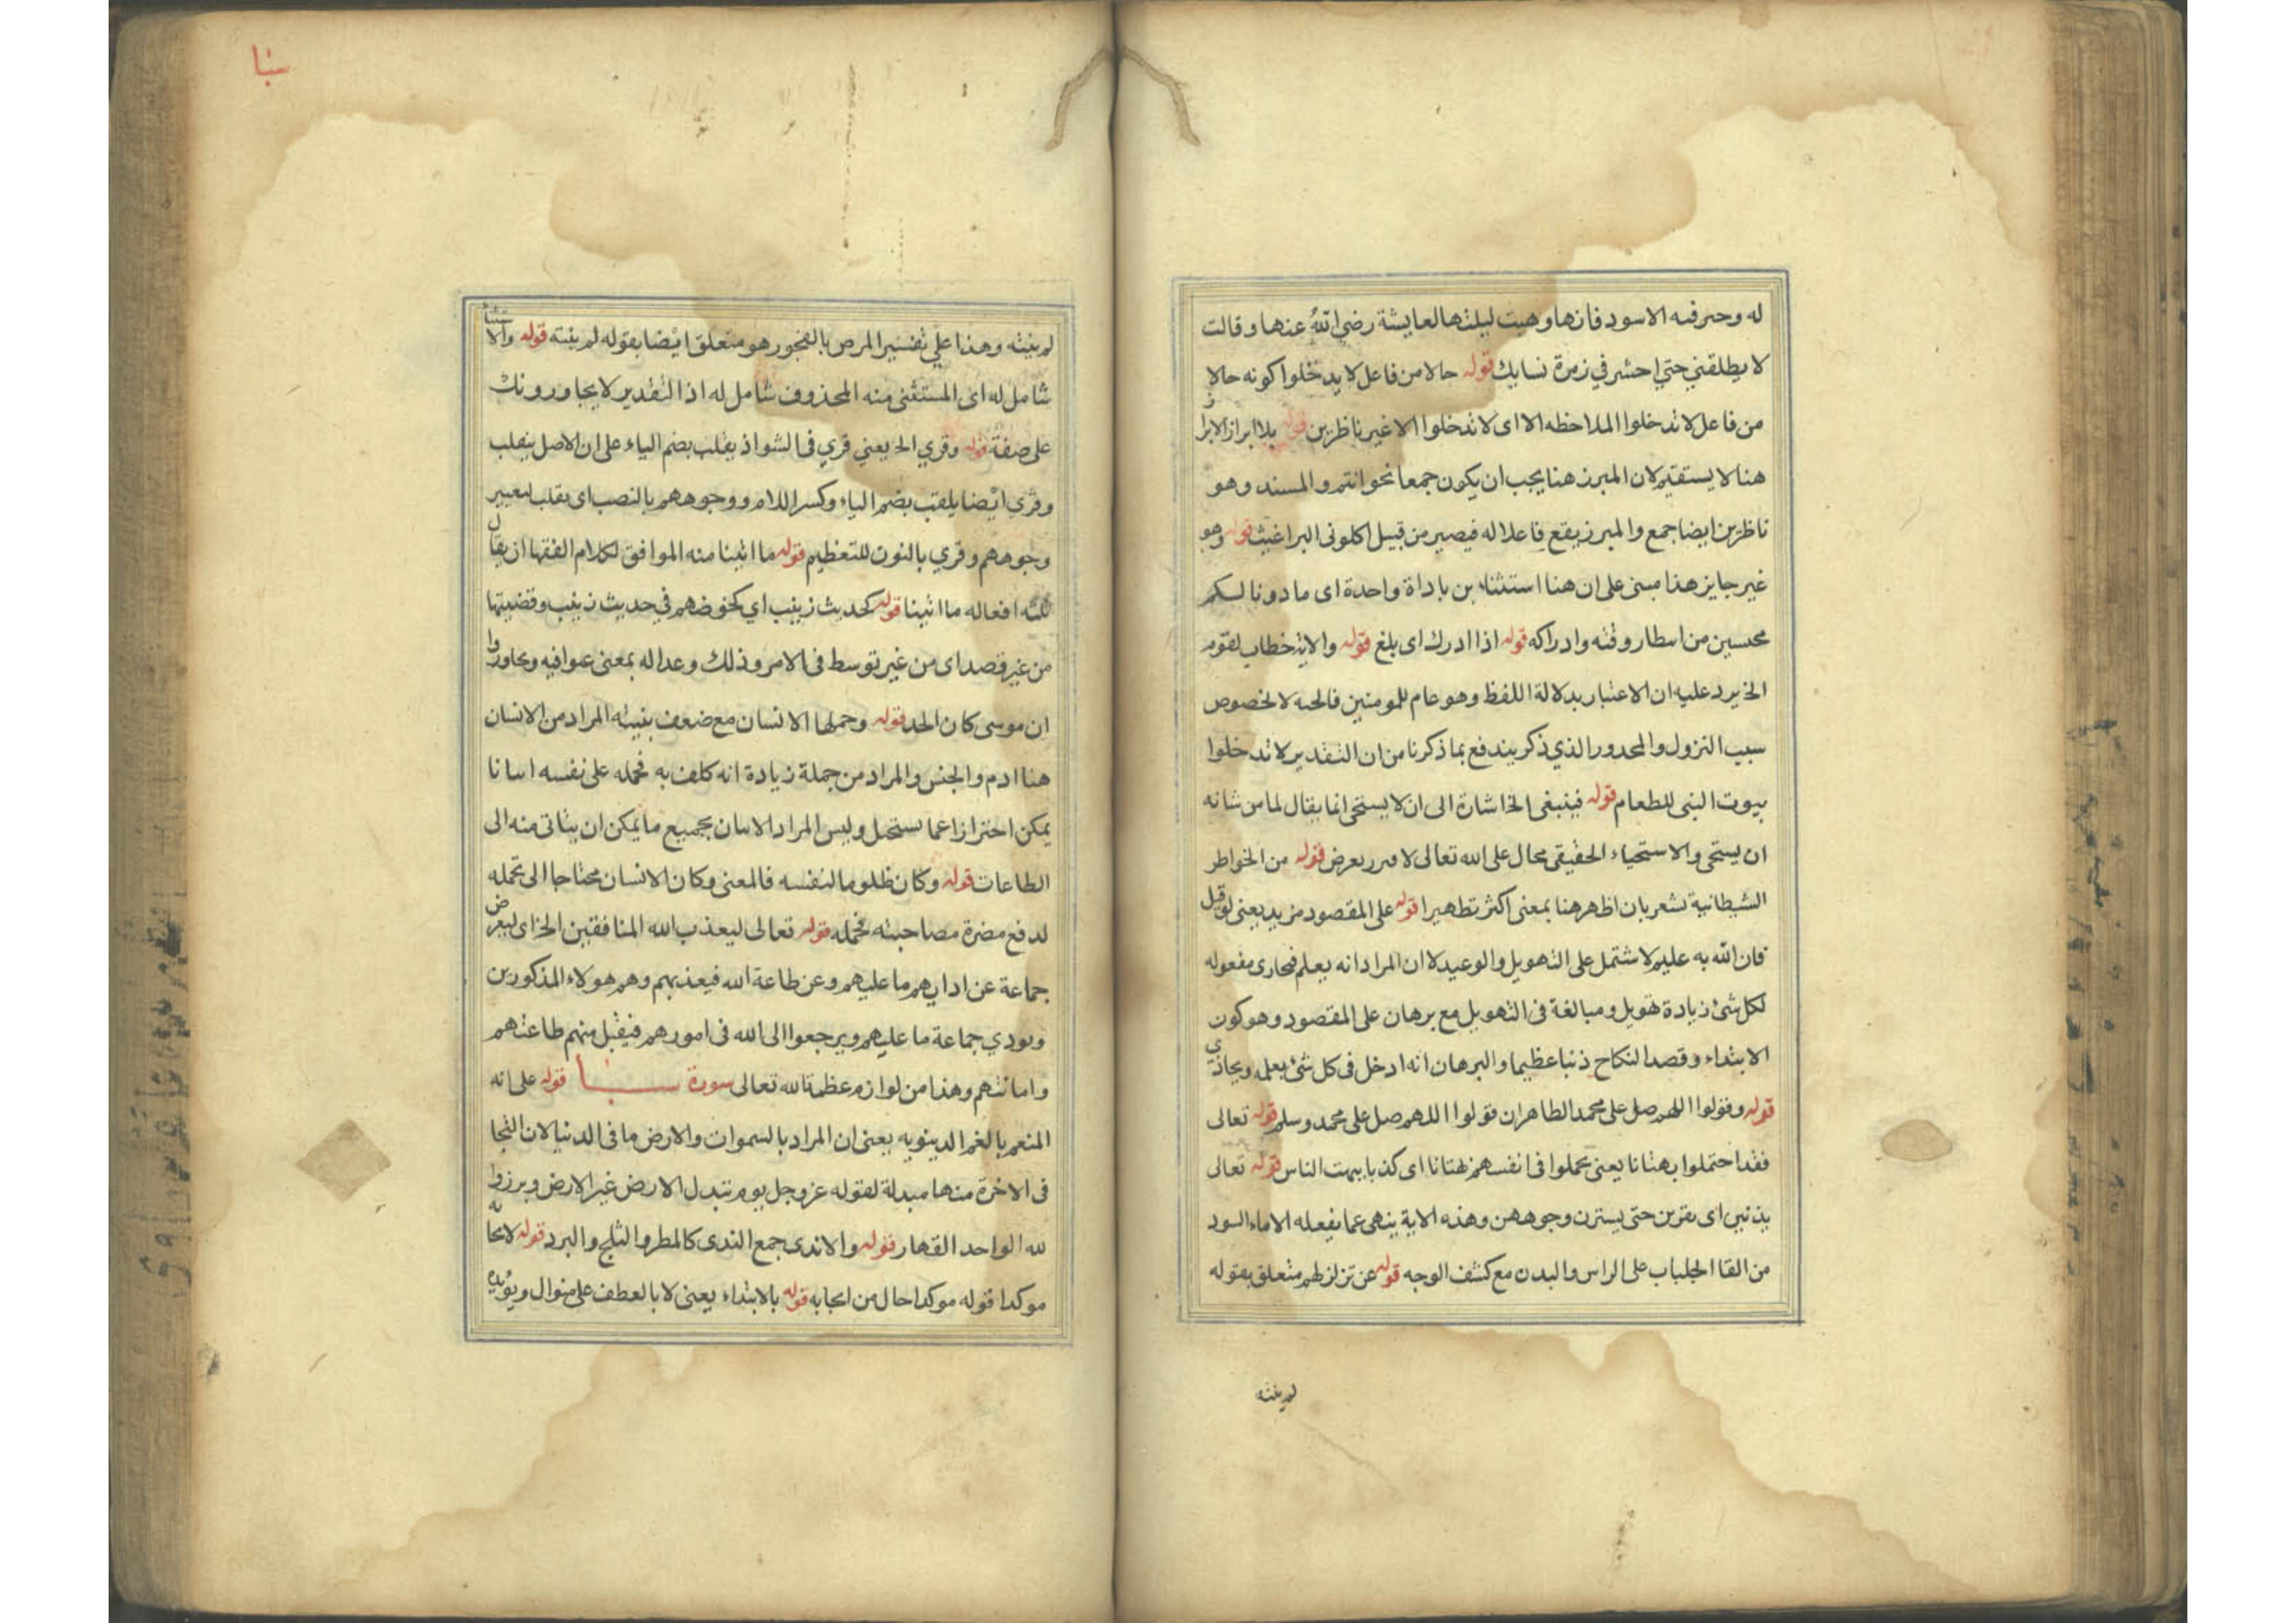 له وحرفه الاسود فانها وهبت ليلتها لعايشة رضي الله عنها وقالت
لا يطلقني حتي احشر في زمرة نسايك قوله حالا من فاعل لا يدخلوا كونه حالا
من فاعل لا تدخلوا الملاحظه الا اى لا تدخلوا الا غير ناظرين قوله بلا ابراز الابراز
هنا لا يستقيم لان المبرز هنا يجب ان يكون جمعا نحو انتم والمسند وهو
ناظرين ايضا جمع والمبرز يقع فاعلا له فيصير من قبيل اكلونى البراغيث قوله وهو
غير جايز هذا مبنى على ان هنا استثناء بن باداة واحدة اى مادونا لكم
محسين من اسطار وقته وادراكه قوله اذا ادرك اى بلغ قوله والاية خطاب لقوم
الخ يرد عليه ان الاعتبار بدلالة اللفظ وهو عام للمومنين فالحه لا لخصوص
سبب النزول والمحدور الذي ذكر يندفع بما ذكرنا من ان التقدير لا تدخلوا
بيوت النبى للطعام قوله فينبغى الخ اشارة الى ان لا يستحى انما يقال لما من شانه
ان يستحى والاستحياء الحقيقى محال على الله تعالى لا مرر يعرض قوله من الخواطر
الشيطانية تشعر بان اظهر هنا بمعنى اكثر تطهيرا قوله على المقصود مزيد يعنى لو قيل
فان الله به عليم لاشتمل على التهويل والوعيد لا ان المراد انه يعلم فيحارى مفعوله
لكل شئ زيادة تهويل ومبالغة فى التهويل مع برهان على المقصود وهو كون
الابتداء وقصد النكاح ذنبا عظيما والبرهان انه ادخل فى كل شئ يعلمه ويجاذى
قوله وقولوا اللهم صل على محمد الظاهر ان قولوا اللهم صل على محمد وسلم قوله تعالى
فقد احتملوا بهتانا يعنى تحملوا فى انفسهم بهتانا اى كذبا يبهت الناس قوله تعالى
يدنين اى يقربن حتى يسترن وجوههن وهذه الاية ينهى عما يفعله الاماء السود
من القا الجلباب على الراس والبدن مع كشف الوجه قوله عن تزلزلهم متعلق بقوله
لم ينته
سبا
لم ينته وهذا علي تفسير المرض بالفجور هو متعلق ايضا بقوله لم ينته قوله والاستثنا
شامل له اى المستثنى منه المحذوف شامل له اذ التقدير لا يجاورونك
على صفة قوله وقري الخ يعني قري فى الشواذ يقلب بضم الياء على ان الاصل ينقلب
وقري ايضا يلقب بضم الياء وكسر اللام ووجوههم بالنصب اى يقلب لمعيير
وجوههم وقري بالنون للتعظيم قوله ما اتينا منه الموافق لكلام الفقها ان يقال
لكنه افعاله ما اتينا قوله كحديث زينب اي كخوضهم في حديث زينب وقضيتها
من غير قصد اى من غير توسط فى الامر وذلك وعداله بمعنى عوافيه وبحاوروا
ان موسى كان الحد قوله وحملها الانسان مع ضعف بنيته المراد من الانسان
هنا ادم والجنس والمراد من جملة زيادة انه كلف به فحمله على نفسه اسانا
يمكن احترازا عما يستحيل وليس المراد الاسان بجميع ما يمكن ان يتاتى منه الى
الطاعات قوله وكان ظلوما لنفسه فالمعنى وكان الانسان محتاجا الى تحمله
لدفع مضرة مصاحبته فحمله قوله تعالى ليعذب الله المنافقين الخ اى ليعرض
جماعة عن ادايهم ما عليهم وعن طاعة الله فيعذبهم وهم هولاء المذكورين
ويودي جماعة ما عليهم ويرجعوا الى الله فى امورهم فيقبل منهم طاعتهم
وامانتهم وهذا من لوازم عظمة الله تعالى سورة سبا قوله على انه
المنعم بالنعم الدينويه يعنى ان المراد بالسموات والارض ما فى الدنيا لان النجا
فى الاخرة منها مبدلة لقوله عز وجل يوم تبدل الارض غير الارض وبرزوا
لله الواحد القهار قوله والاندى جمع الندى كالمطر والثلج والبرد قوله لايحابه
موكدا قوله موكدا حال من ايجابه قوله بالابتداء يعنى لا بالعطف على منوال ويؤيده